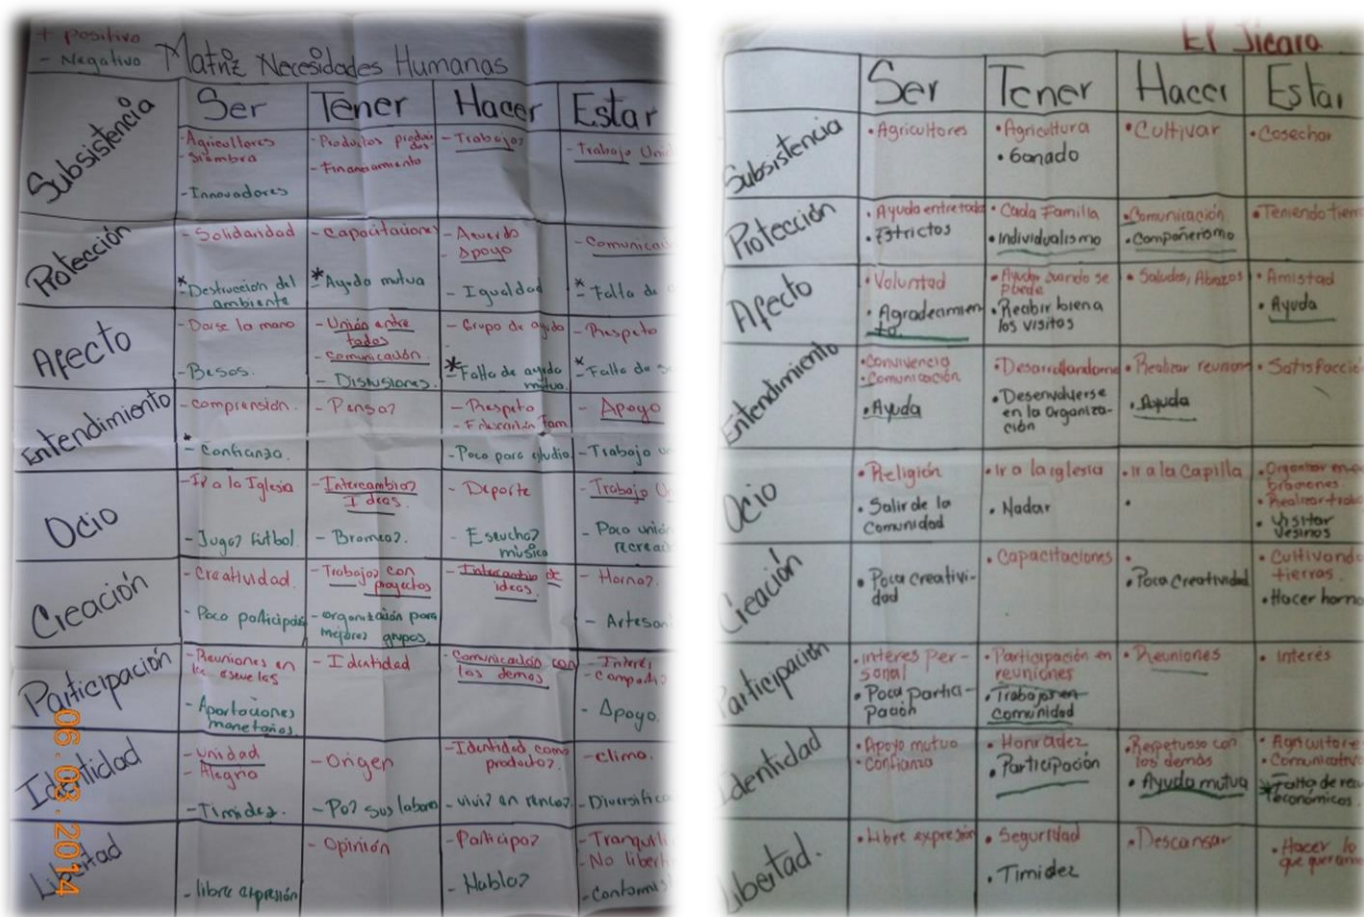 + positivo
- Negativo
Matriz Necesidades Humanas
Ser Tener Hacer Estar
Subsistencia
-Agricultores
- Siembra
- Innovadores
- Productos
- Financiamiento
- Trabajo?
- Trabajo
Protección
- Solidaridad
* Destrucción del
ambiente
- Capacitaciones
* Ayuda mutua
- Acuerdo
- Apoyo
- Igualdad
* - Falta de
Afecto
- Darse la mano
- Besos.
- Unión entre
todos
- comunicación.
- Disusiones.
- Grupo de ayuda
* Falta de ayuda
mutua.
- Respeto
* - Falta de
Entendimiento
- Comprensión.
* - Confianza.
- Pensa?
- Respeto
- Educación Fam
- Poco para estudio
- Apoyo
- Trabajo
Ocio
- Ir a la Iglesia
- Juga? Futbol.
- Intercambio?
Ideas.
- Bromea?.
- Deporte
- Escucha?
música
- Trabajo
- Poca unión
Creación
- Creatividad.
- Poco participa
- Trabajo? con
proyectos
- organización para
mejora? grupos.
- Intercambio de
ideas.
- Horna?.
Participación
- Reuniones en
las escuelas
- Aportaciones
monetarias.
- Identidad
- Comunicación con
los demas
- Apoyo.
Identidad
- unidad
- Alegria
- Timidez.
- Origen
- Po? sus labores
- Identidad como
producto?.
- vivi? en
- Clima.
Libertad
- libre expresión
- Opinión
- Participa?
- Habla?
- No
06.03.2014
El Jicaro
Ser Tener Hacer Estar
Subsistencia
• Agricultores
• Agricultura
• Ganado
• Cultivar
• Cosechar
Protección
• Ayuda entre todos
• Estrictos
• Cada Familia
• Individualismo
• Comunicación
• Compañerismo
• Teniendo
Afecto
• Voluntad
• Agradeamien
to.
• Ayuda cuando se
puede
• Reabir biena
los visitos
• Saludos, Abrazos
• Amistad
• Ayuda
Entendimiento
• Convivencia
• Comunicación
• Ayuda
• Desarrollandome
• Desenvolverse
en la organiza-
ción
• Realizar reunion
• Ayuda
Ocio
• Religión
• Salir de la
Comunidad
• Ir a la iglesia
• Nadar
• Ir a la Capilla
•
• Visitar
Vesinos
Creación
• Poca creativi-
dad
• Capacitaciones
•
• Poca creatividad
• Cultivando
tierras.
• Hacer horno
Participación
• interes per-
sonal
• Poca partici-
pación
• Participación en
reuniones
• Trabajar en
Comunidad
• Reuniones
• Interés
Identidad
• Apoyo mutuo
• Confianza
• Honradez
• Participación
Respetuoso con
los demás
• Ayuda mutua
Falta de
económicos.
Libertad.
• Libre expresión
• Seguridad
• Timidez
• Descansar
• Hacer lo
que